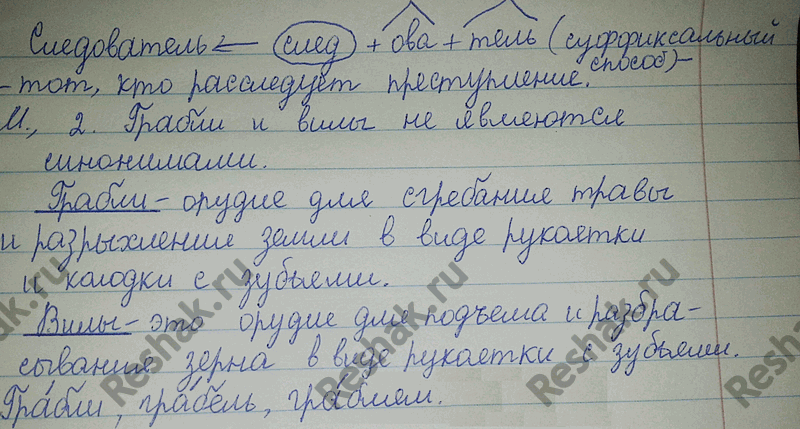 Следователь ← след + ова + тель (суффиксальный способ) -
- тот, кто расследует преступление.
М., 2. Грабли и вилы не являются
синонимами.
Грабли - орудие для сгребания травы
и разрыхления земли в виде рукаетки
и колодки с зубьями.
Вилы - это орудие для подъема и разбра-
сывания зерна в виде рукаетки с зубьями.
Гра́бли, гра́бель, гра́блям.
Reshak.ru
Reshak.ru
Reshak.ru
Reshak.ru